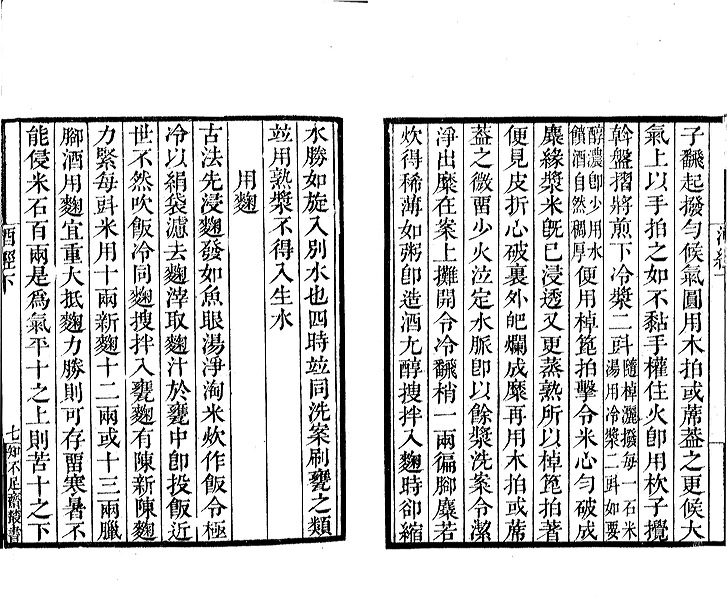 子翻起撥勻候氣圓用木拍或蓆葢之更候大
氣上以手拍之如不黏手權住火卽用杴子攪
斡盤摺將煎下冷漿二㪷隨棹灑撥每一石米湯用冷漿二㪷如要
醇濃卽少用水饙酒自然稠厚便用棹箆拍擊令米心勻破成
麋緣漿米旣已浸透又更蒸熟所以棹箆拍著
便見皮折心破裏外𤆵爛成麋再用木拍或蓆
葢之微畱少火泣定水脈卽以餘漿洗案令潔
淨出麋在案上攤開令冷翻稍一兩徧腳麋若
炊得稀薄如粥卽造酒尤醇搜拌入麴時卻縮
水勝如旋入別水也四時竝同洗案刷甕之類
竝用熟漿不得入生水
用麴
古法先浸麴發如魚眼湯淨淘米炊作飯令極
冷以絹袋濾去麴滓取麴汁於甕中卽投飯近
世不然吹飯冷同麴搜拌入甕麴有陳新陳麴
力緊每㪷米用十兩新麴十二兩或十三兩臘
腳酒用麴宜重大抵麴力勝則可存畱寒暑不
能侵米石百兩是爲氣平十之上則苦十之下
酒經下
七知不足齋叢書